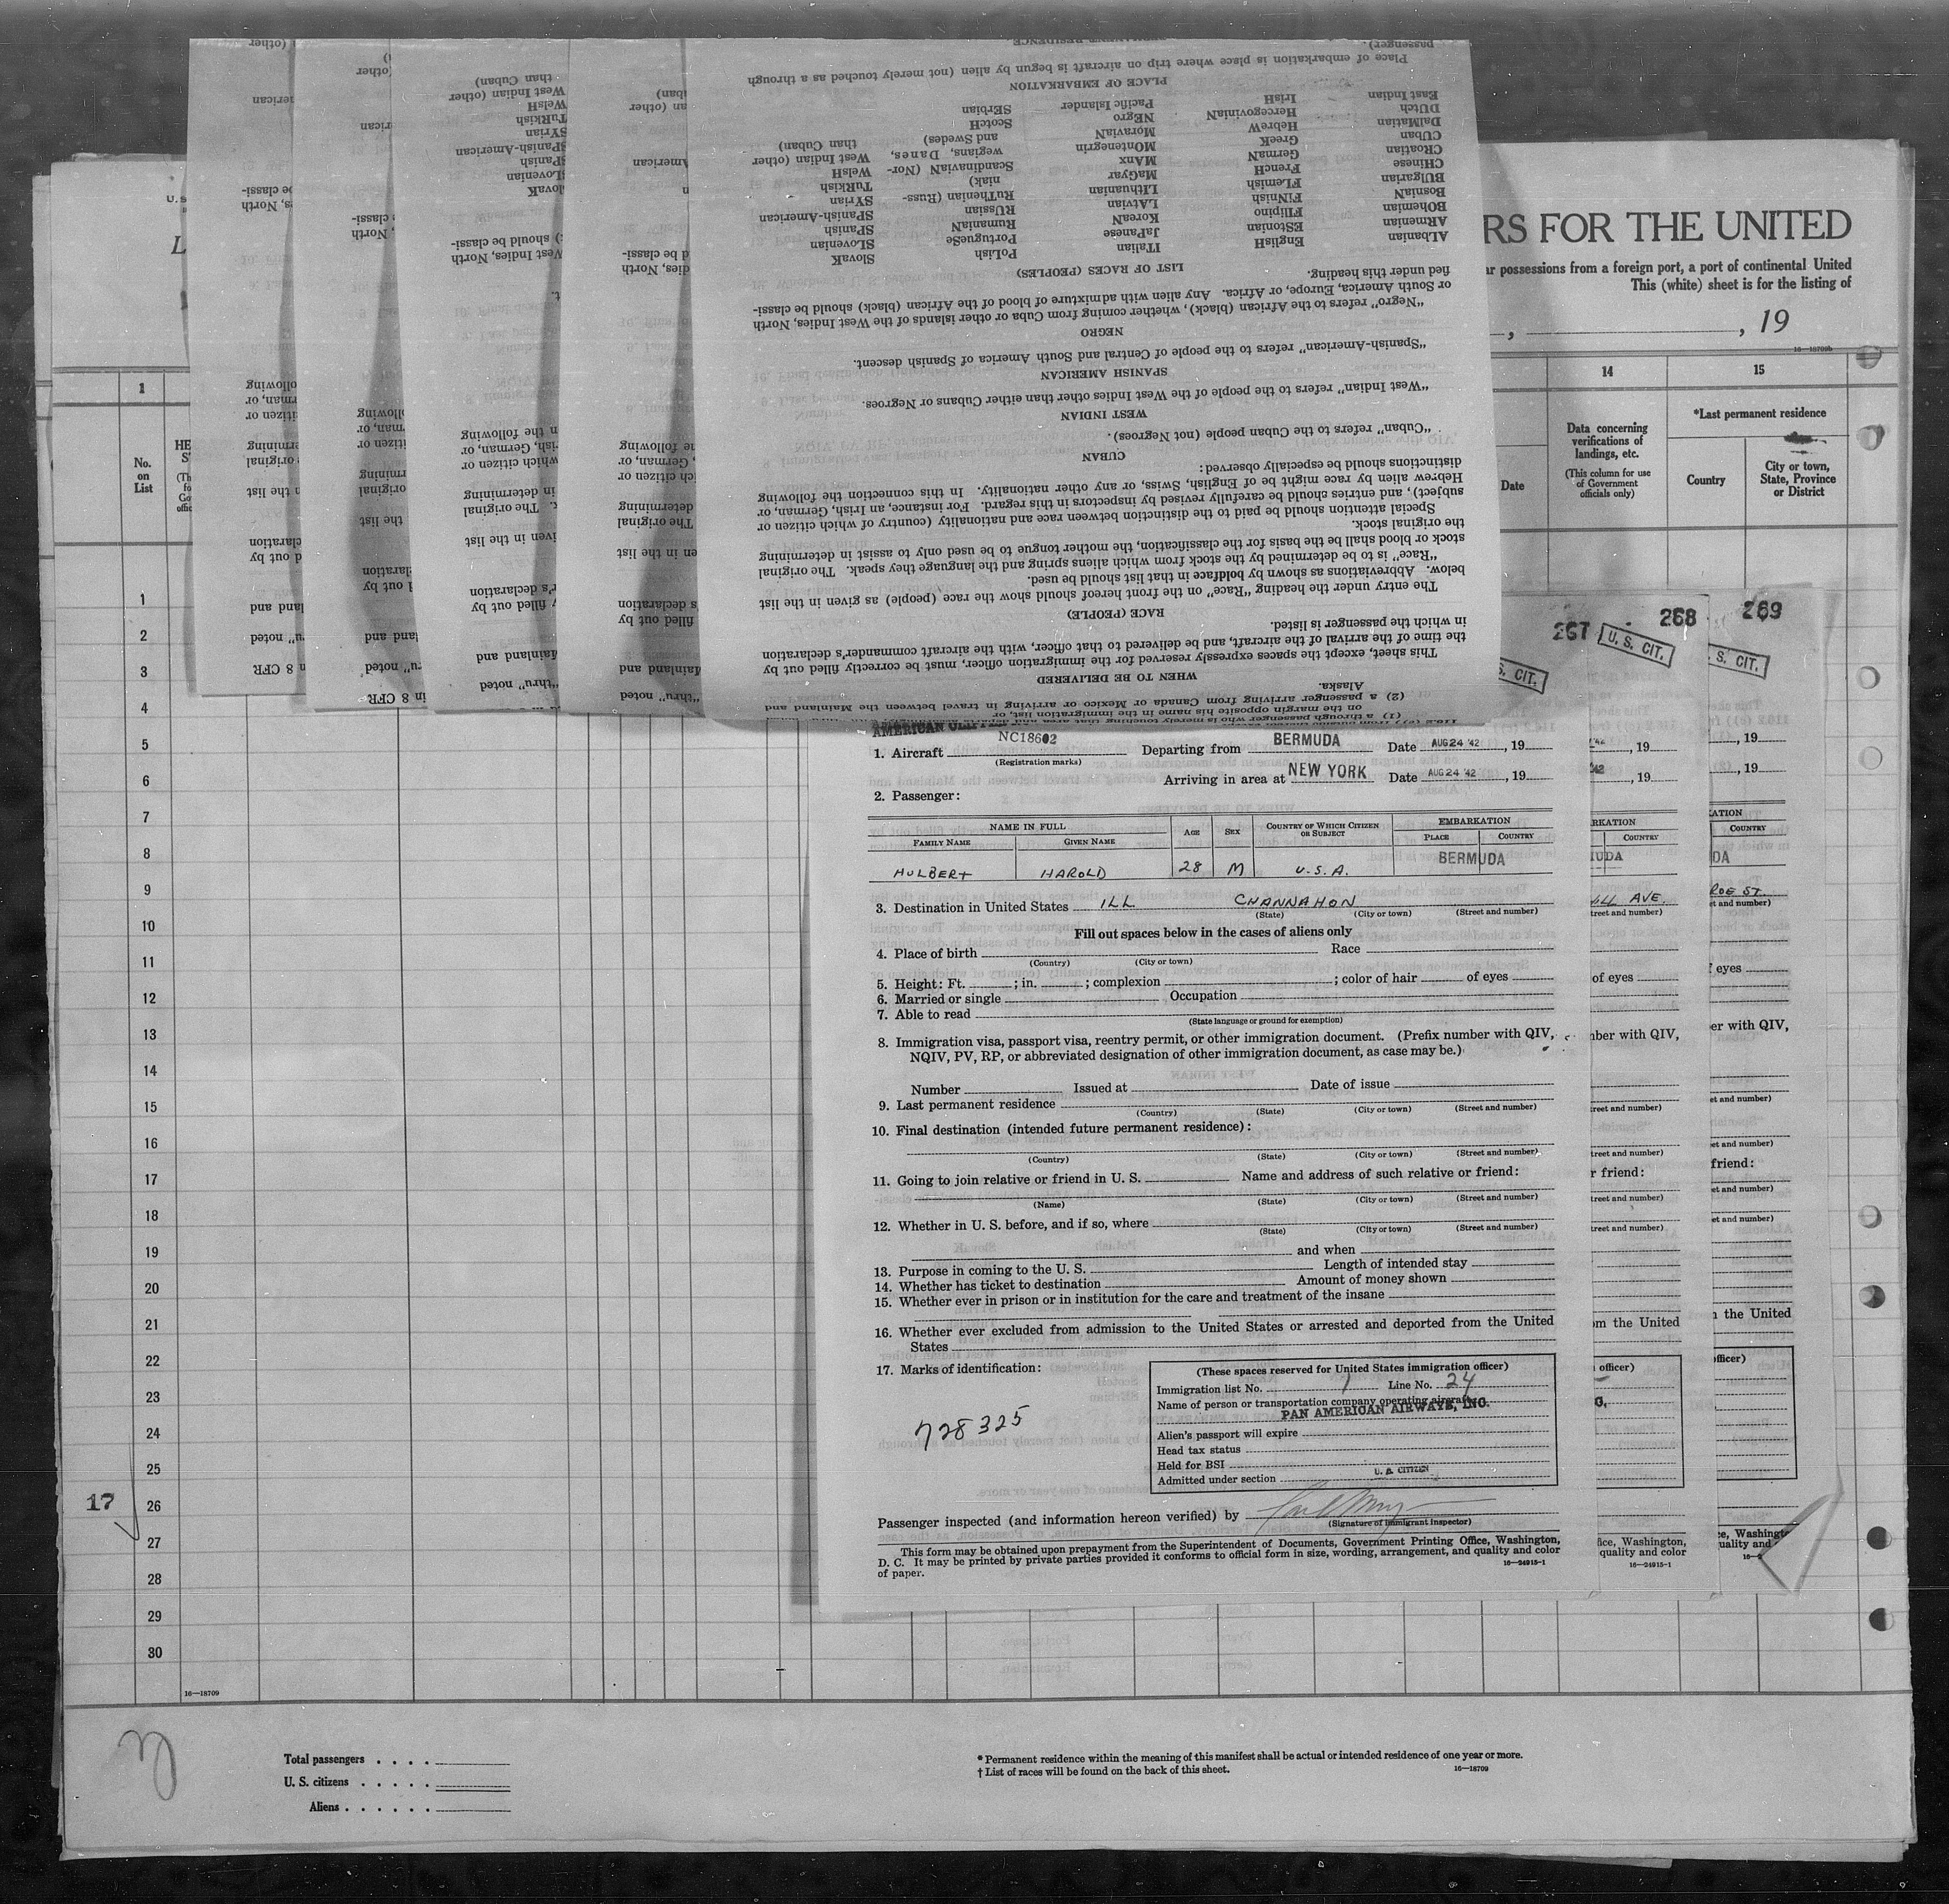 RS FOR THE UNITED
ar possessions from a foreign port, a port of continental United
This (white) sheet is for the listing of
, 19
16—18709b
U. S.
L
1
14
15
No.
on
List
HE
Date
Data concerning
verifications of
landings, etc.
(This column for use
of Government
officials only)
*Last permanent residence
Country
City or town,
State, Province
or District
passenger).
Place of embarkation is place where trip on aircraft is begun by alien (not merely touched as a through
PLACE OF EMBARKATION
East Indian IrisH Pacific Islander SErbian
DUtch HercegoviniaN NEgro ScotcH
DalMatian HebreW MoraviaN and Swedes) than Cuban)
CUban GreeK MOntenegrin wegians, Danes, West Indian (other
CRoatian GermaN MAnx ScandinaviaN (Nor- WelsH
CHinese FrencH MaGyar niak) TuRkish
BUlgarian FLemish LIthuanian RuThenian (Russ- SYrian
BosniaN FiNNish LAtvian RUssian SPanish-American
BOhemian FIlipino KoreaN RumaniaN SPanish
ARmenian EStonian JaPanese PortugueSe SLovenian
ALbanian EnglisH ITalian PoLish SlovaK
LIST OF RACES (PEOPLES)
fied under this heading.
or South America, Europe, or Africa. Any alien with admixture of blood of the African (black) should be classi-
“Negro” refers to the African (black), whether coming from Cuba or other islands of the West Indies, North
NEGRO
“Spanish-American” refers to the people of Central and South America of Spanish descent.
SPANISH AMERICAN
“West Indian” refers to the people of the West Indies other than either Cubans or Negroes.
WEST INDIAN
“Cuban” refers to the Cuban people (not Negroes).
CUBAN
distinctions should be especially observed:
Hebrew alien by race might be of English, Swiss, or any other nationality. In this connection the following
subject), and entries should be carefully revised by inspectors in this regard. For instance, an Irish, German, or
Special attention should be paid to the distinction between race and nationality (country of which citizen or
the original stock.
stock or blood shall be the basis for the classification, the mother tongue to be used only to assist in determining
“Race” is to be determined by the stock from which aliens spring and the language they speak. The original
below. Abbreviations as shown by boldface in that list should be used.
The entry under the heading “Race” on the front hereof should show the race (people) as given in the list
RACE (PEOPLE)
in which the passenger is listed.
the time of the arrival of the aircraft, and be delivered to that officer, with the aircraft commander's declaration
This sheet, except the spaces expressly reserved for the immigration officer, must be correctly filled out by
WHEN TO BE DELIVERED
Alaska.
(2) a passenger arriving from Canada or Mexico or arriving in travel between the Mainland and
on the margin opposite his name in the immigration list, or
267
268
269
U. S. CIT.
S. CIT.
S. CIT.
AMERICAN CLIPPER
1. Aircraft NC18602 Departing from BERMUDA Date AUG 24 '42, 19
(Registration marks)
Arriving in area at NEW YORK Date AUG 24 '42, 19
2. Passenger:
NAME IN FULL
FAMILY NAME GIVEN NAME
AGE
SEX
COUNTRY OF WHICH CITIZEN
OR SUBJECT
EMBARKATION
PLACE COUNTRY
HULBERT HAROLD 28 M U.S.A. BERMUDA
3. Destination in United States ILL CHANNAHON
(State) (City or town) (Street and number)
Fill out spaces below in the cases of aliens only
4. Place of birth Race
(Country) (City or town)
5. Height: Ft. ; in. ; complexion ; color of hair of eyes
6. Married or single Occupation
7. Able to read
(State language or ground for exemption)
8. Immigration visa, passport visa, reentry permit, or other immigration document. (Prefix number with QIV,
NQIV, PV, RP, or abbreviated designation of other immigration document, as case may be.)
Number Issued at Date of issue
9. Last permanent residence
(Country) (State) (City or town) (Street and number)
10. Final destination (intended future permanent residence):
(Country) (State) (City or town) (Street and number)
11. Going to join relative or friend in U. S. Name and address of such relative or friend:
(Name) (State) (City or town) (Street and number)
12. Whether in U. S. before, and if so, where
(State) (City or town) (Street and number)
and when
13. Purpose in coming to the U. S. Length of intended stay
14. Whether has ticket to destination Amount of money shown
15. Whether ever in prison or in institution for the care and treatment of the insane
16. Whether ever excluded from admission to the United States or arrested and deported from the United
States
17. Marks of identification:
728325
(These spaces reserved for United States immigration officer)
Immigration list No. 1 Line No. 24
Name of person or transportation company operating aircraft
PAN AMERICAN AIRWAYS, INC.
Alien's passport will expire
Head tax status
Held for BSI
Admitted under section U. S. CITIZEN
Passenger inspected (and information hereon verified) by
(Signature of immigrant inspector)
This form may be obtained upon prepayment from the Superintendent of Documents, Government Printing Office, Washington,
D. C. It may be printed by private parties provided it conforms to official form in size, wording, arrangement, and quality and color
of paper.
16—24915-1
1
2
3
4
5
6
7
8
9
10
11
12
13
14
15
16
17
18
19
20
21
22
23
24
25
17
26
27
28
29
30
16—18709
Total passengers
U. S. citizens
Aliens
* Permanent residence within the meaning of this manifest shall be actual or intended residence of one year or more.
† List of races will be found on the back of this sheet.
16—18709